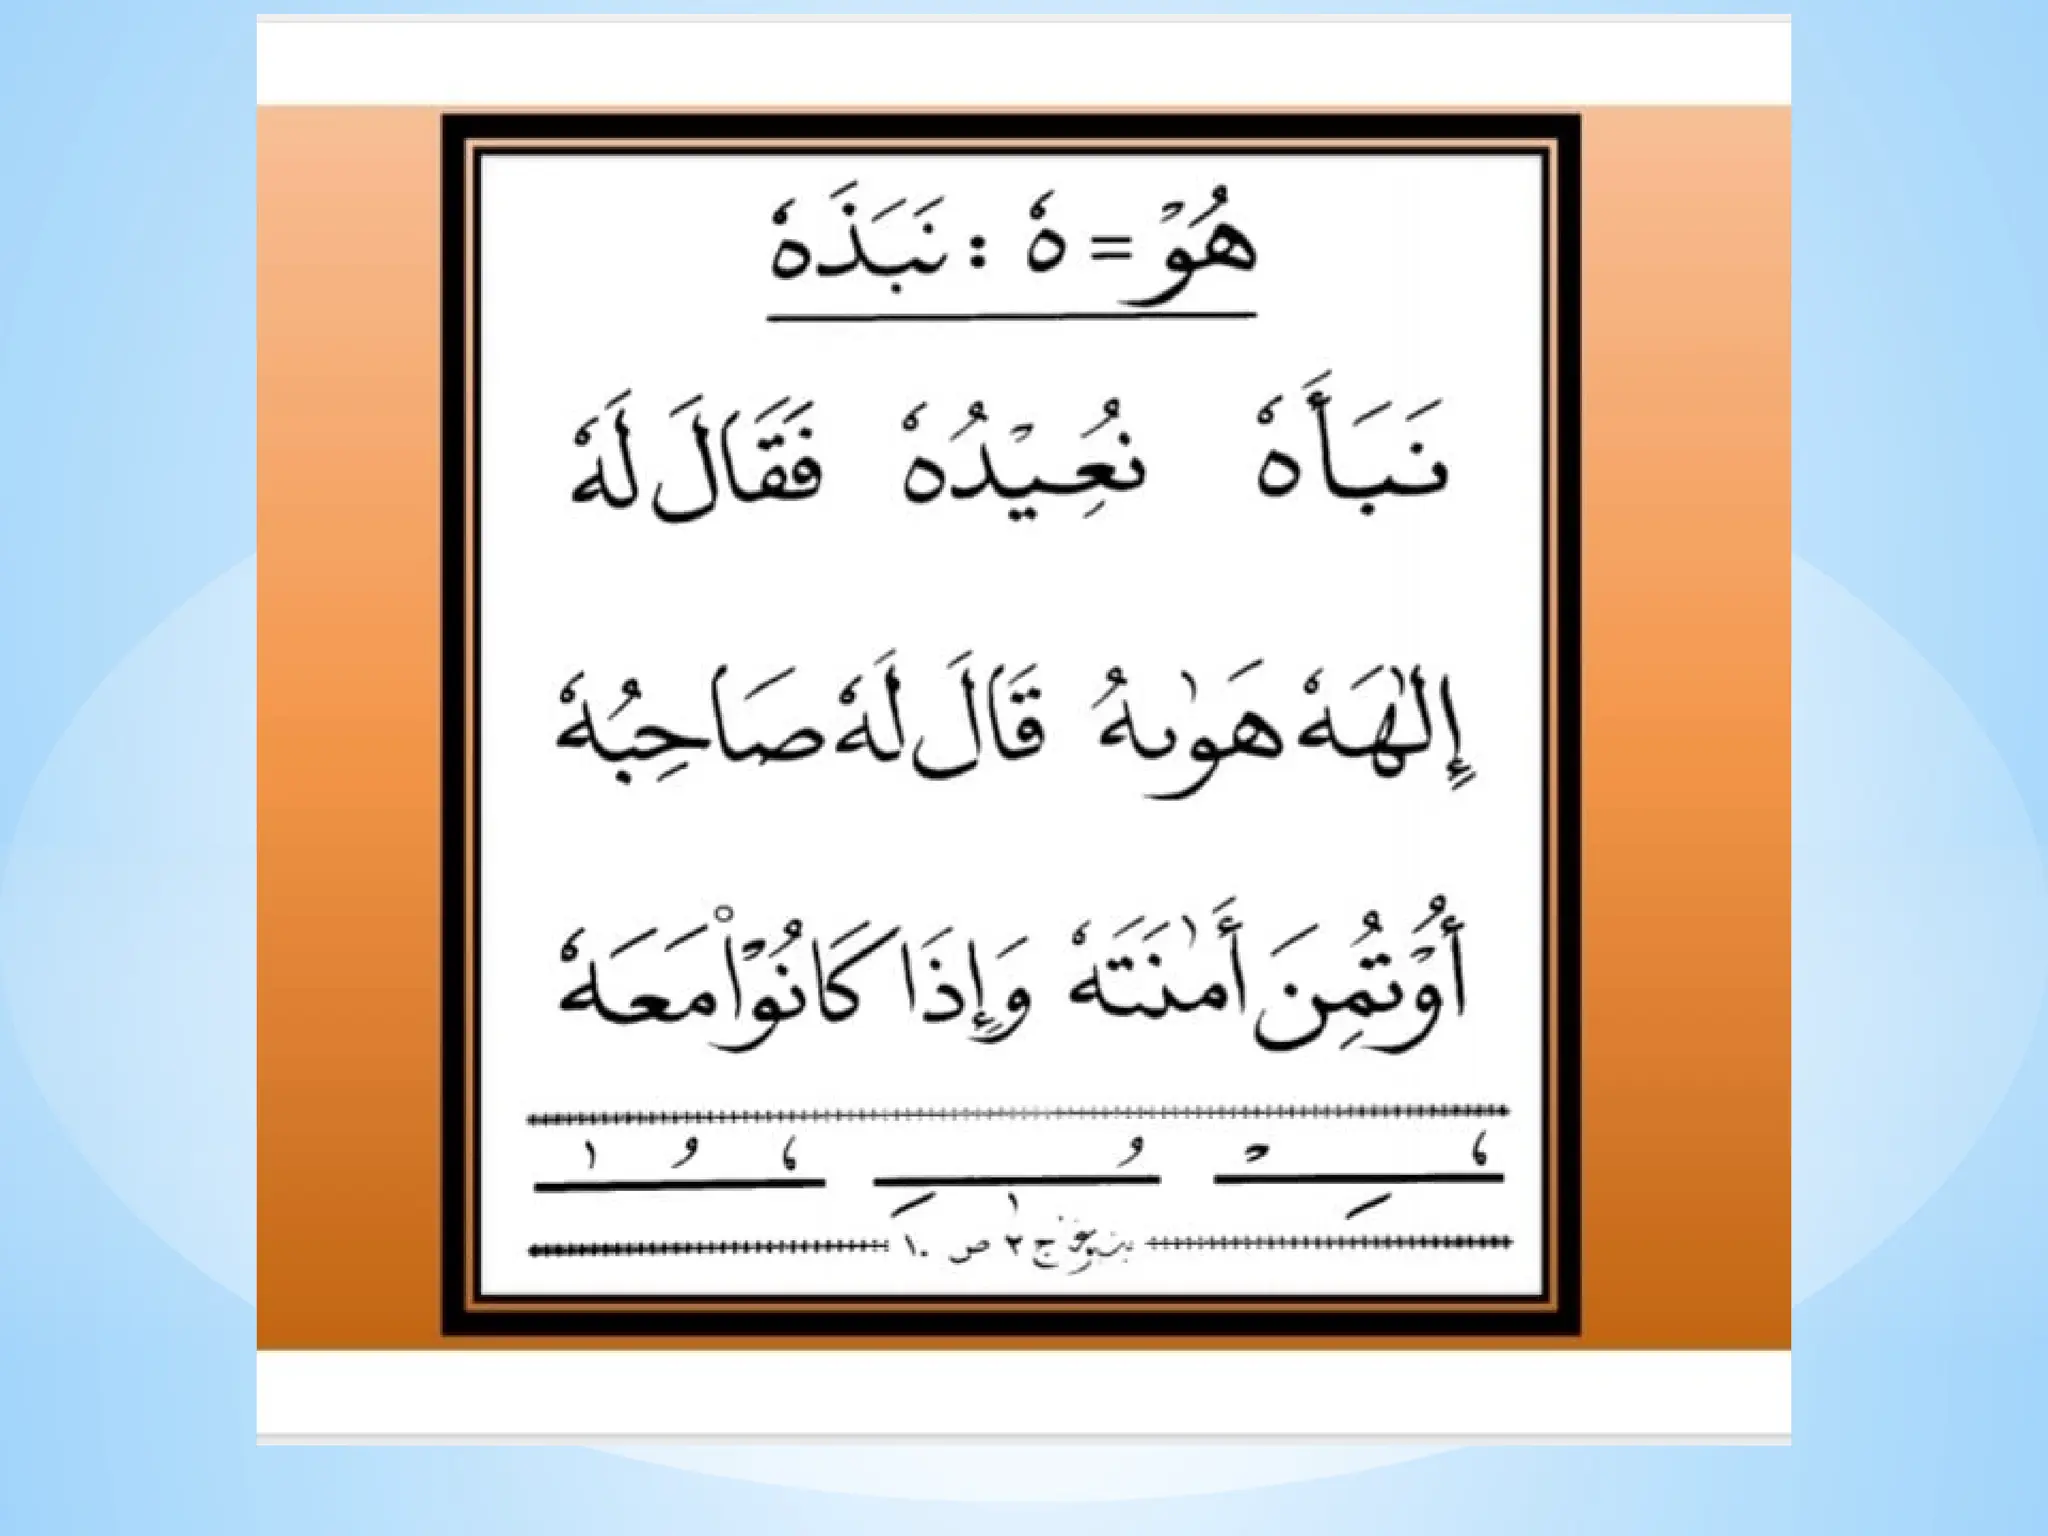 هُوْ = هٗ : نَبَذَهٗ
نَبَأَهٗ نُعِيْدُهٗ فَقَالَ لَهٗ
إِلٰهَهٗ هَوٰىهُ قَالَ لَهٗ صَاحِبُهٗ
أُوْتُمِنَ أَمٰنَتَهٗ وَإِذَا كَانُوْا۟ مَعَهٗ
ج ٢ ص ١٠